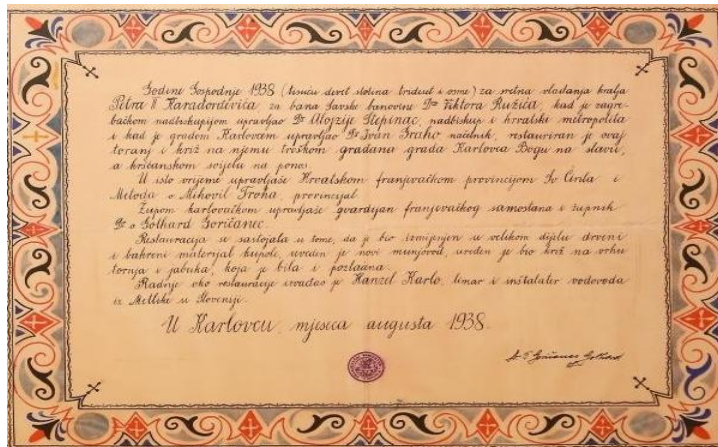 Godine Gospodnje 1938 (tisuću devet stotina trideset i osme) za sretna vladanja kralja
Petra II Karađorđevića za bana Savske banovine Dra Viktora Ružića, kad je zagre-
bačkom nadbiskupijom upravljao Dr Alojzije Stepinac, nadbiskup i hrvatski metropolita
i kad je gradom Karlovcem upravljao Dr Ivan načelnik, restauriran je ovaj
toranj i križ na njemu troškom građana grada Karlovca Bogu na slavu,
a kršćanskom svijetu na ponos.
U isto vrijeme upravljaše Hrvatskom franjevačkom provincijom Sv Ćirila i
Metoda o Mihovil Troha, provincijal.
Župom karlovačkom upravljaše gvardijan franjevačkog samostana i župnik
Dr o Gothard Goričanec.
Restauracija se sastojala u tome, da je bio izmijenjen u velikom dijelu drveni
i bakreni materijal kupole, uveden je novi munjovod, uređen je bio križ na vrhu
tornja i jabuka, koja je bila i pozlaćena.
Radnje oko restauracije izvađao je Hanzel Karlo, limar i inštalater vodovoda
iz Metlike u Sloveniji.
U Karlovcu, mjeseca augusta 1938.
Gothard